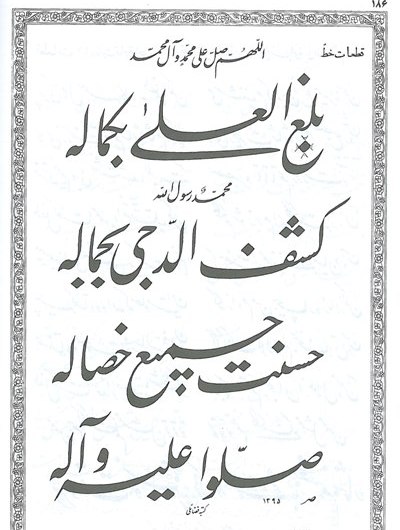 ۱۸۶
قطعات خط
اللّهُمَّ صَلِّ عَلی مُحَمَّد وَآلِ مُحَمَّد
بلغ العلےٰ بکماله
محمّد رسول الله
کشف الدّجی بجماله
حسنت جمیع خصاله
صلّوا علیه وآله
۱۳۹۵